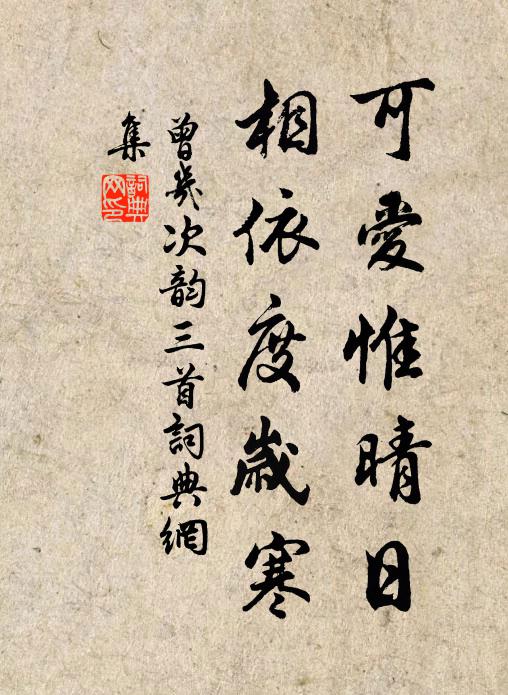 可愛惟晴日
相依度歲寒
曾幾次韵三首詞典網
集
詞典网印